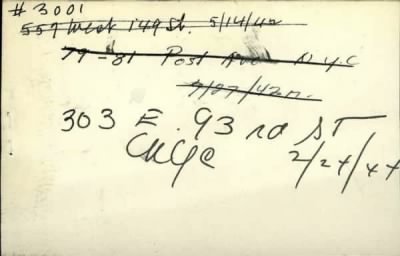 # 3001
557 West 149 St. 5/14/42
79-81 Post Ave N Y C
303 E. 93 rd ST
2/24/44